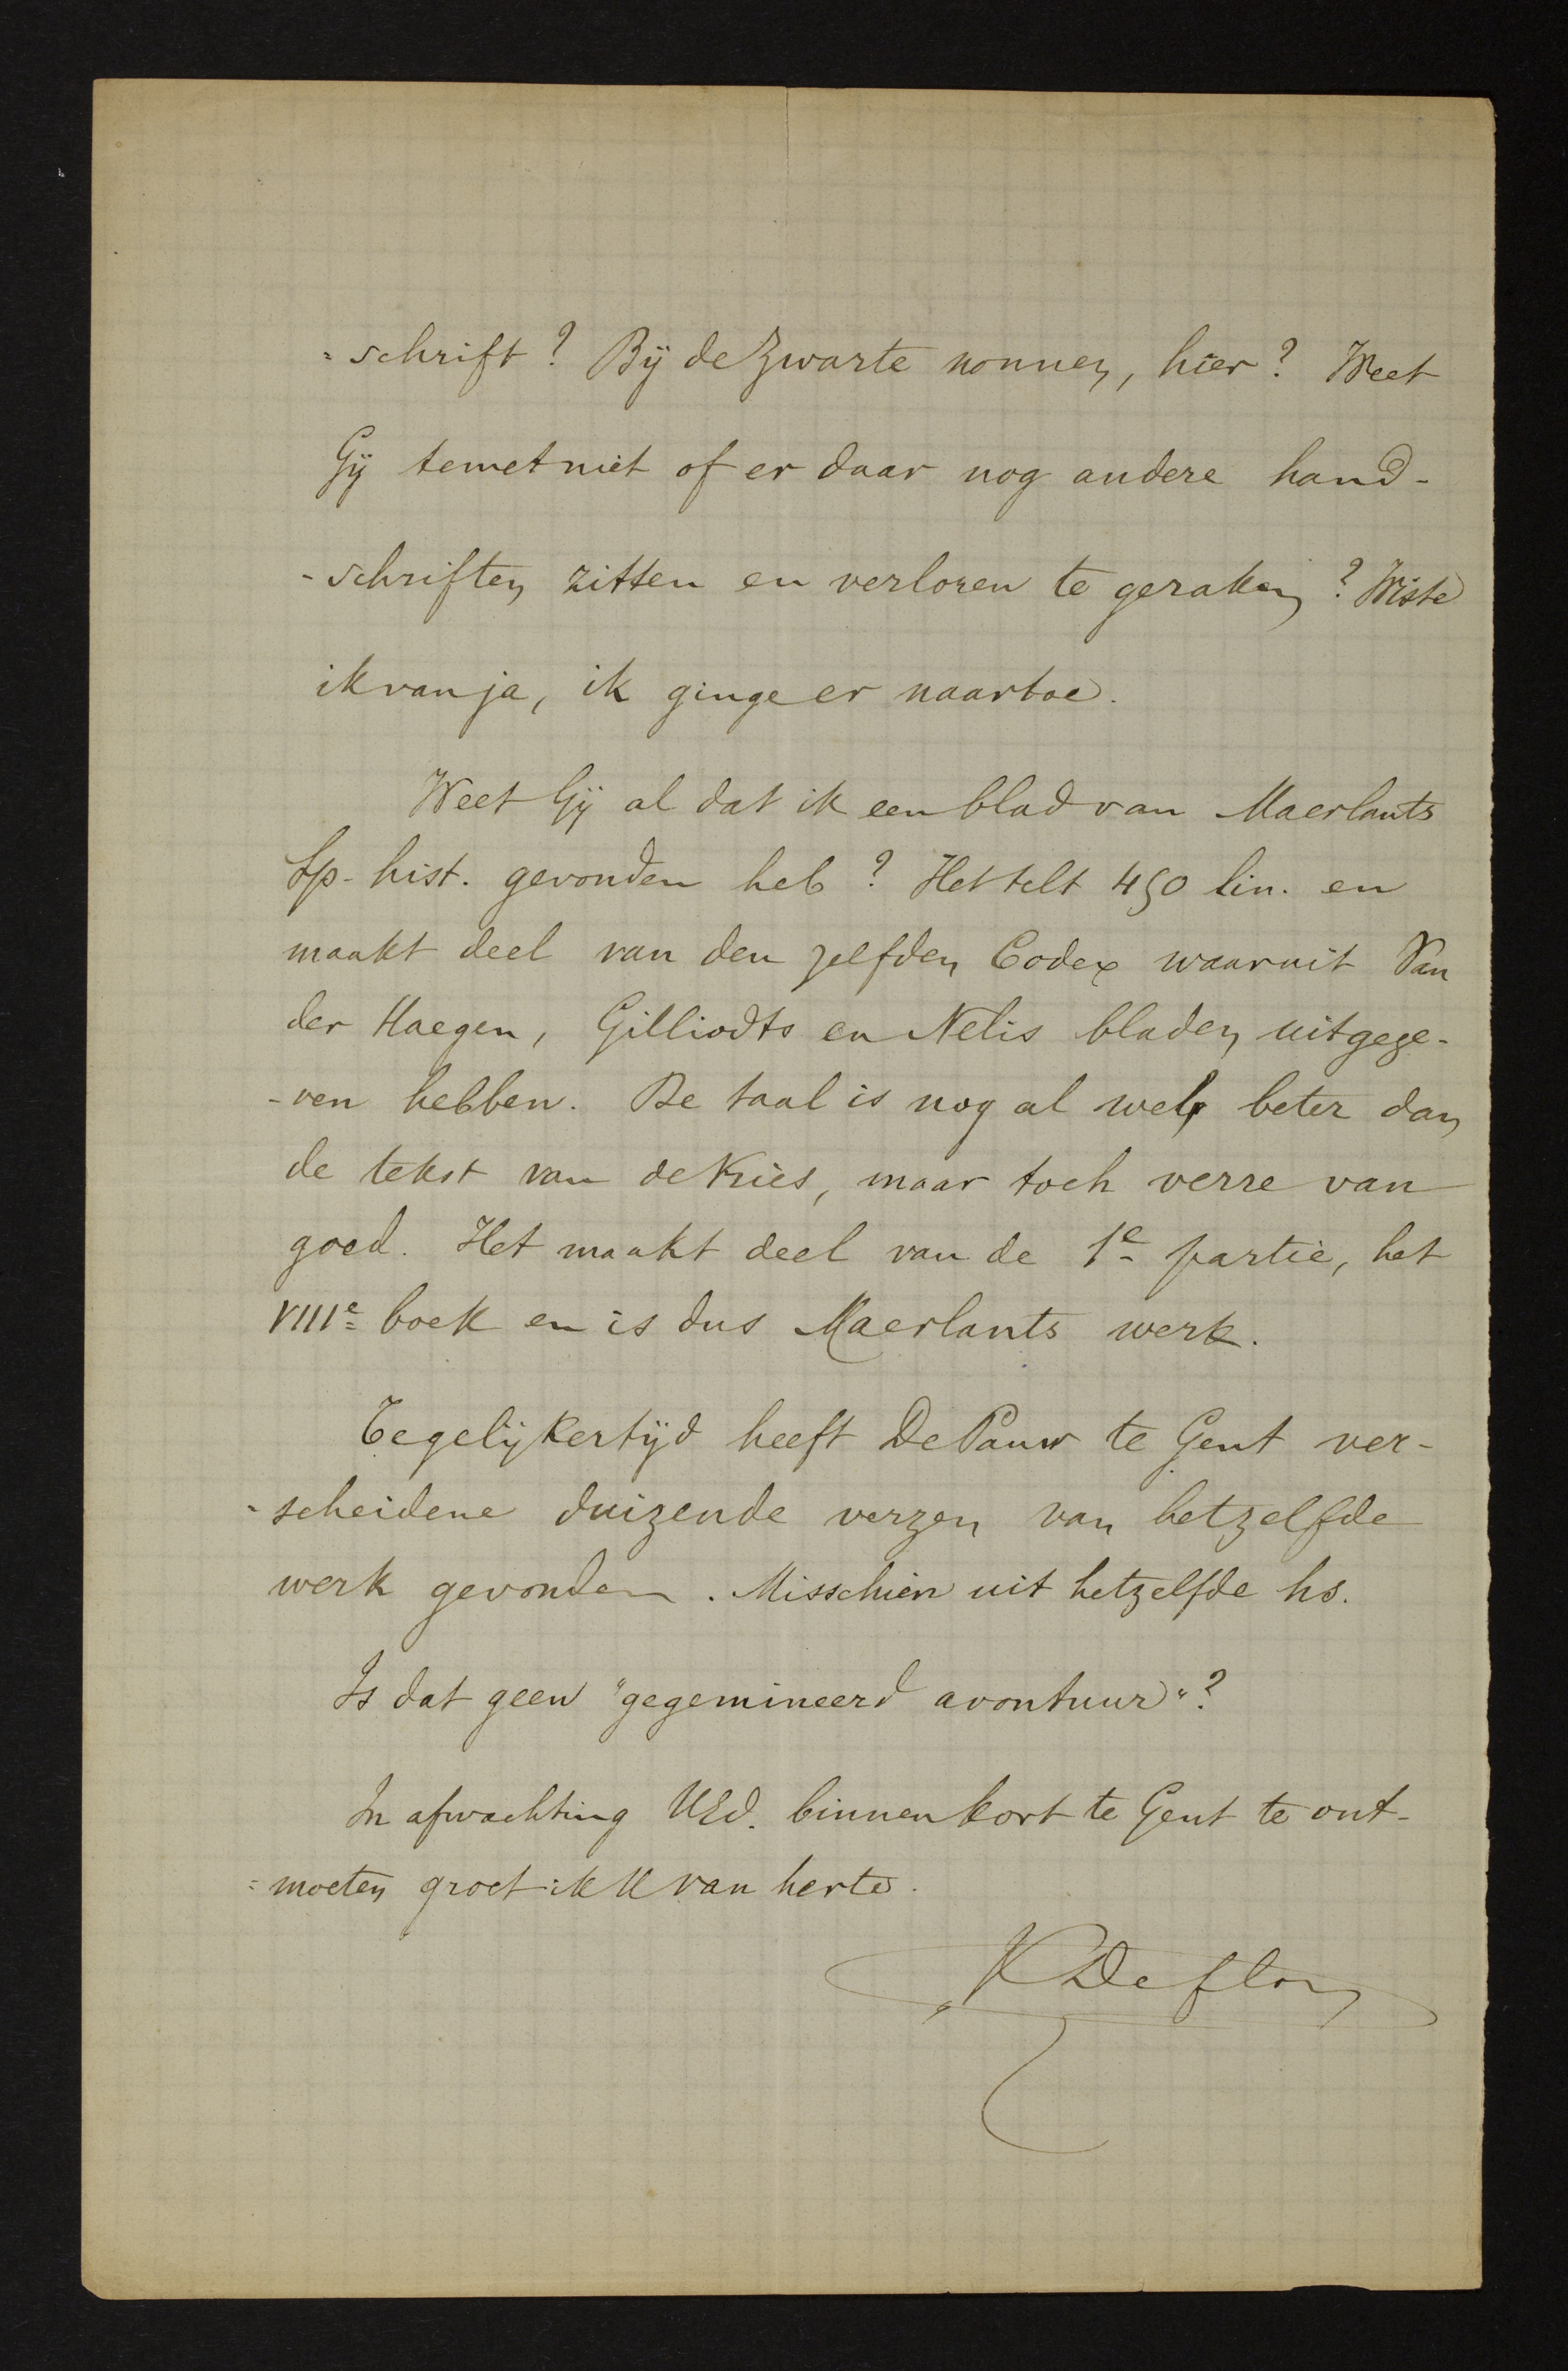 =schrift? Bij de Zwarte nonnen, hier? Weet
Gij temet niet of er daar nog andere hand-
-schriften zitten en verloren te geraken? Wiste
ik van ja, ik ginge er naartoe.
Weet Gij al dat ik een blad van Maerlants
Sp. hist. gevonden heb? Het telt 450 lin. en
maakt deel van den zelfden Codex waaruit Van
der Haegen, Gilliodts en Nelis bladen uitgege-
-ven hebben. De taal is nog al wel beter dan
de tekst van de Vries, maar toch verre van
goed. Het maakt deel van de 1e partie, het
VIIIe boek en is dus Maerlants werk.
Tegelijkertijd heeft De Pauw te Gent ver-
-scheidene duizende verzen van hetzelfde
werk gevonden. Misschien uit hetzelfde hs.
Is dat geen "gegemineerd avontuur"?
In afwachting UEd. binnen kort te Gent te ont-
=moeten groet ik U van herte.
K Deflou